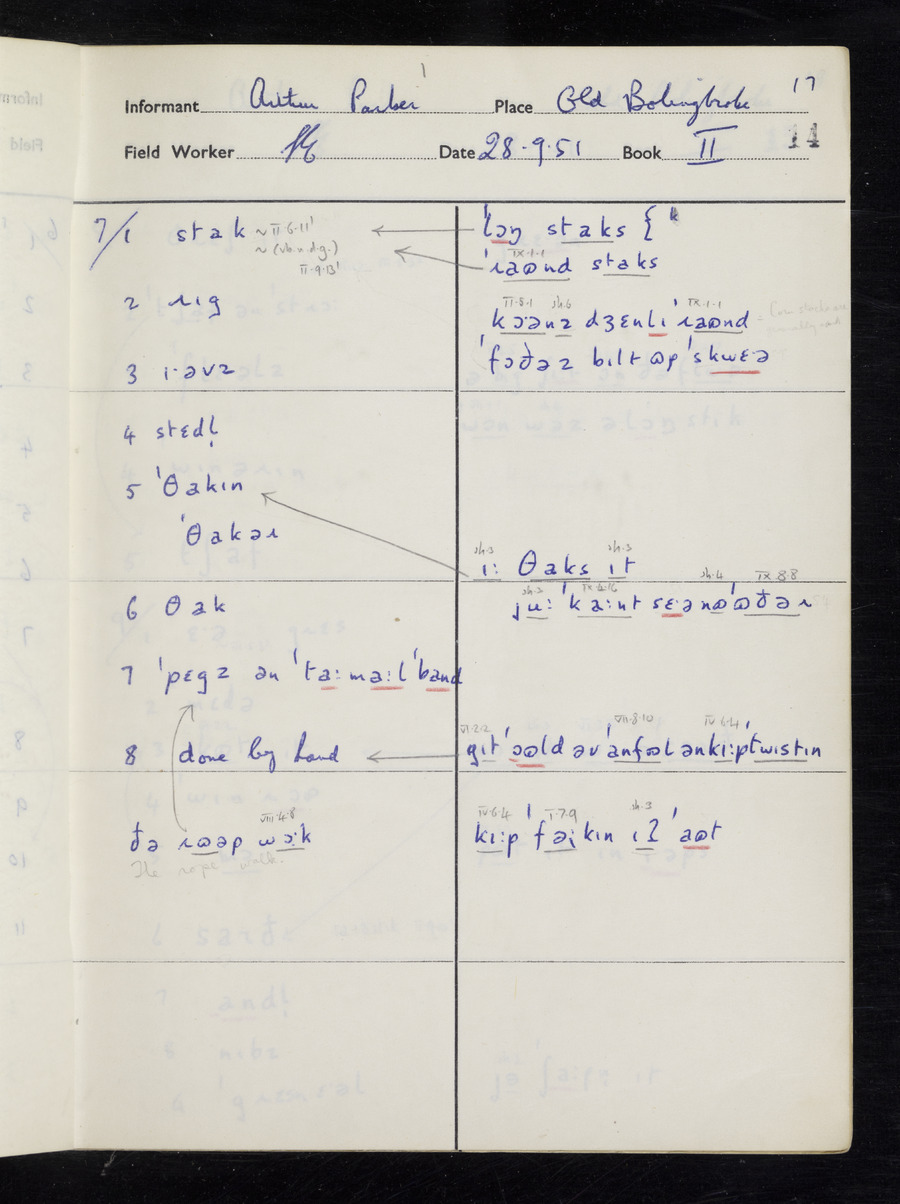 17
Informant Arthur Parker Place Old Bolingbroke
Field Worker Date 28·9·51 Book II 14
7/1 stak ~ II·6·11'
~ (vb. n.d.g.)
II·9·13'
'lɔŋ staks { k
IX·1·1
'ɹaʊnd staks
2 ɹɪg
II·8·1 sh.6 IX·1·1
kɔ:ənz dʒɛnlɪ 'ɹaʊnd
3 i·əvz
'fɔðəz bɪlt ʊp 'skwɛə
4 stɛdl̩
5 'θakɪn
'θakəɹ
sh.3 sh.3
ɪ: θaks ɪt
6 θak
sh.3 IX·4·16 sh.4 IX·8·8
ju: 'ka:nt sɛ·ə nʊ'ʊðəɹ
7 'pɛgz ən 'ta:ma:l 'band
8 done by hand
VI·2·2 VII·8·10 IV·6·4
gɪt 'ɔʊld əv 'anfʊl ənkɪ:p 'twɪstɪn
VIII·4·8
ðə ɹʊəp wɔ:k
The rope walk.
IV·6·4 I·7·9 sh.3
kɪ:p 'fəɪkɪn ɪʔ 'aʊt